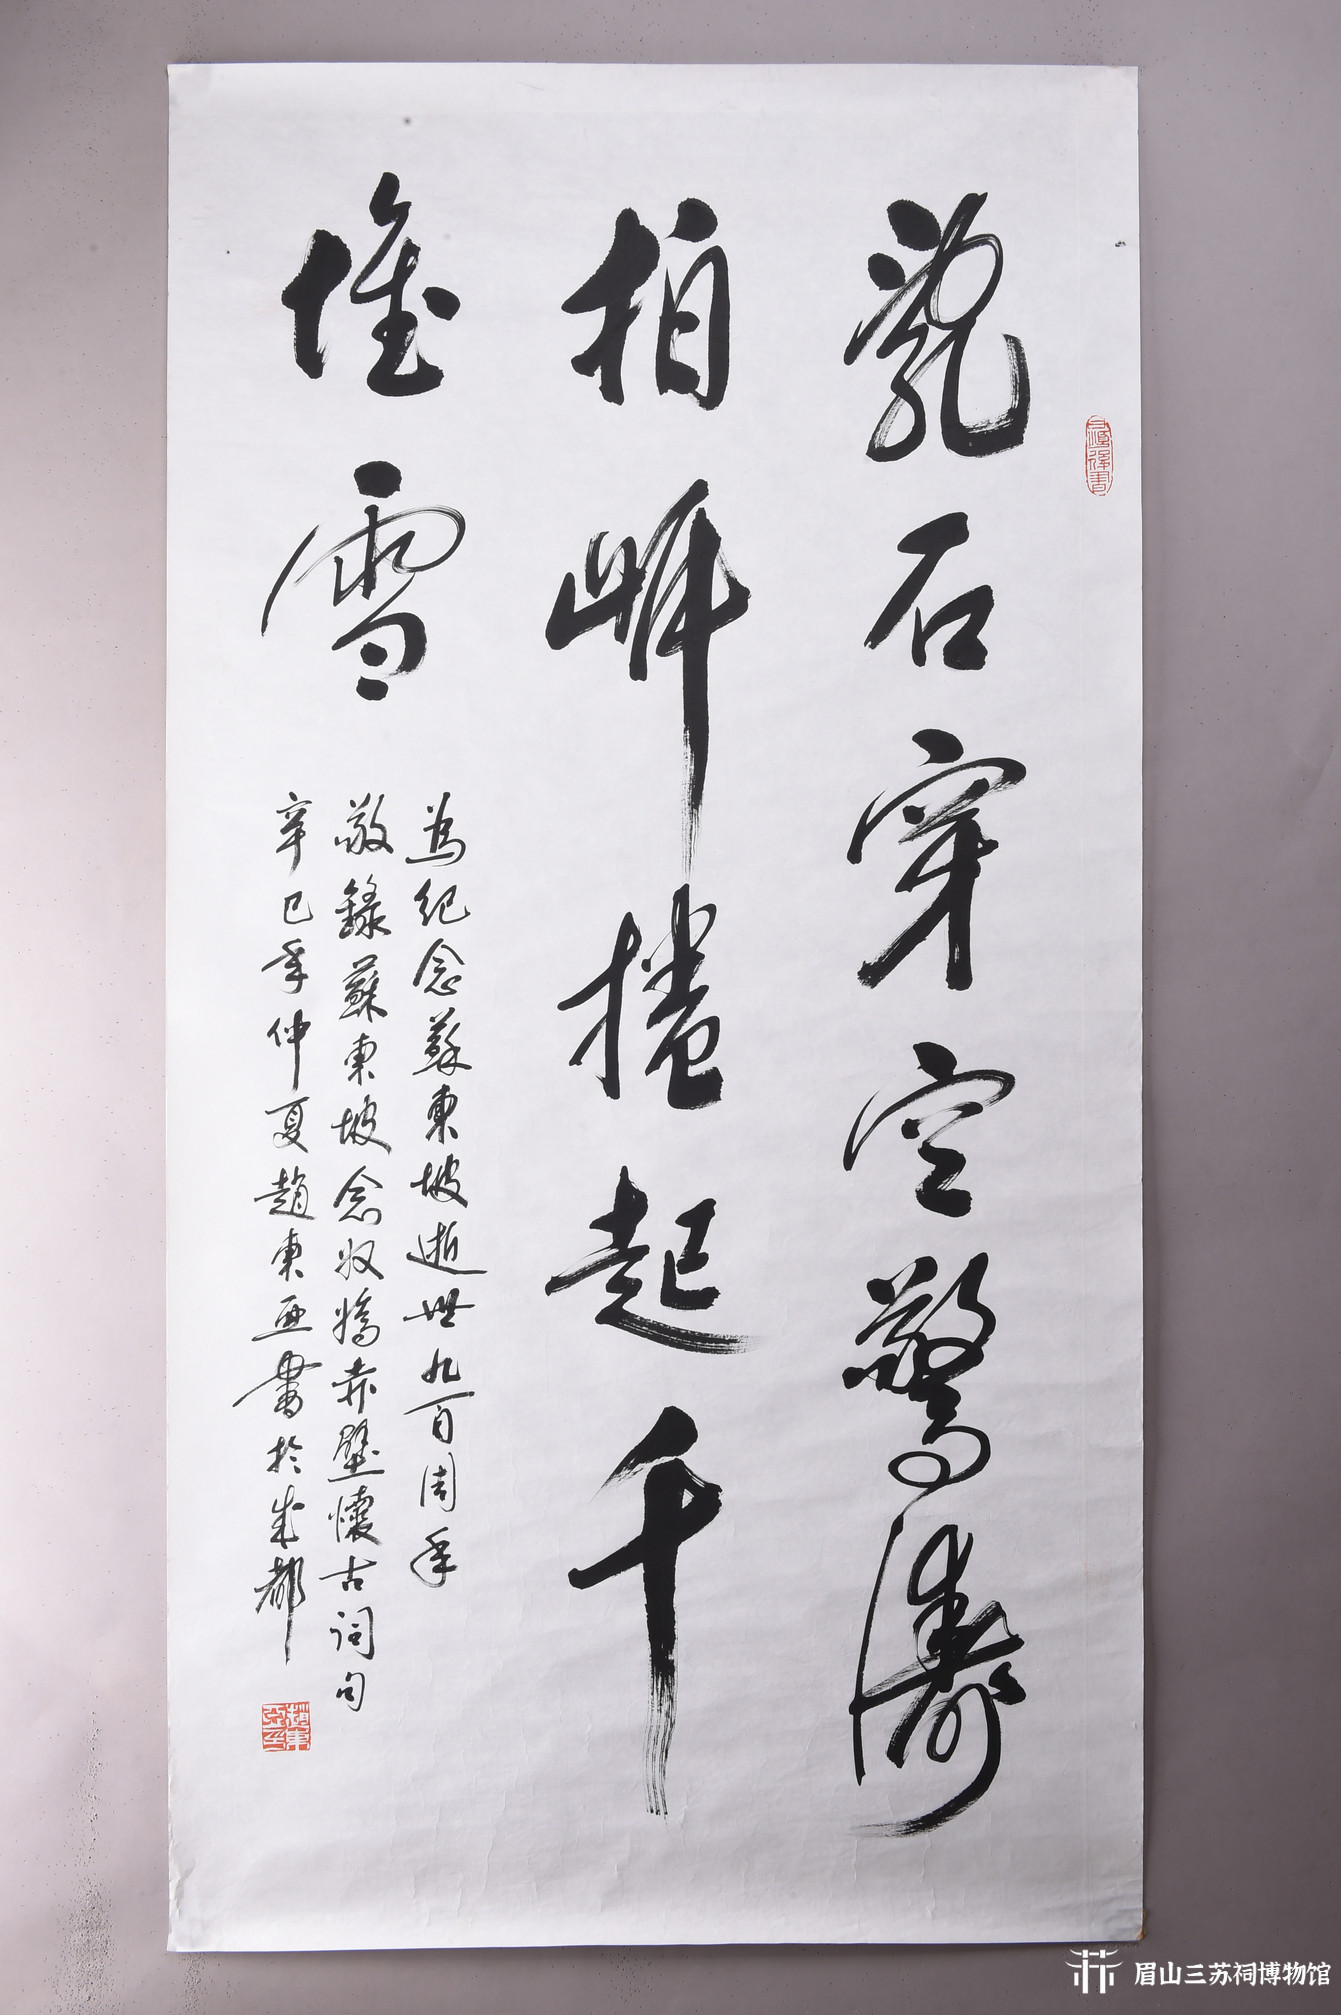 亂石穿空驚濤
拍岸捲起千
堆雪
為紀念蘇東坡逝世九百周年
敬錄蘇東坡念奴嬌赤壁懷古詞句
辛巳年仲夏趙東亞書於成都
趙東亞印
眉山三苏祠博物馆